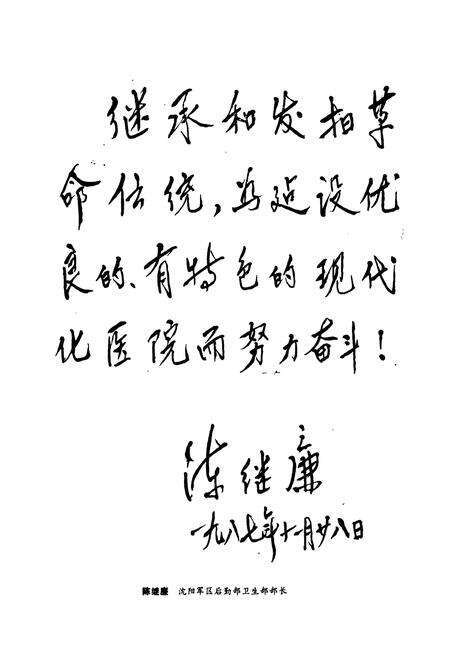 继承和发扬革
命传统，为建设优
良的、有特色的现代
化医院而努力奋斗！
陈继廉
一九八七年十一月廿八日
陈继廉 沈阳军区后勤部卫生部部长